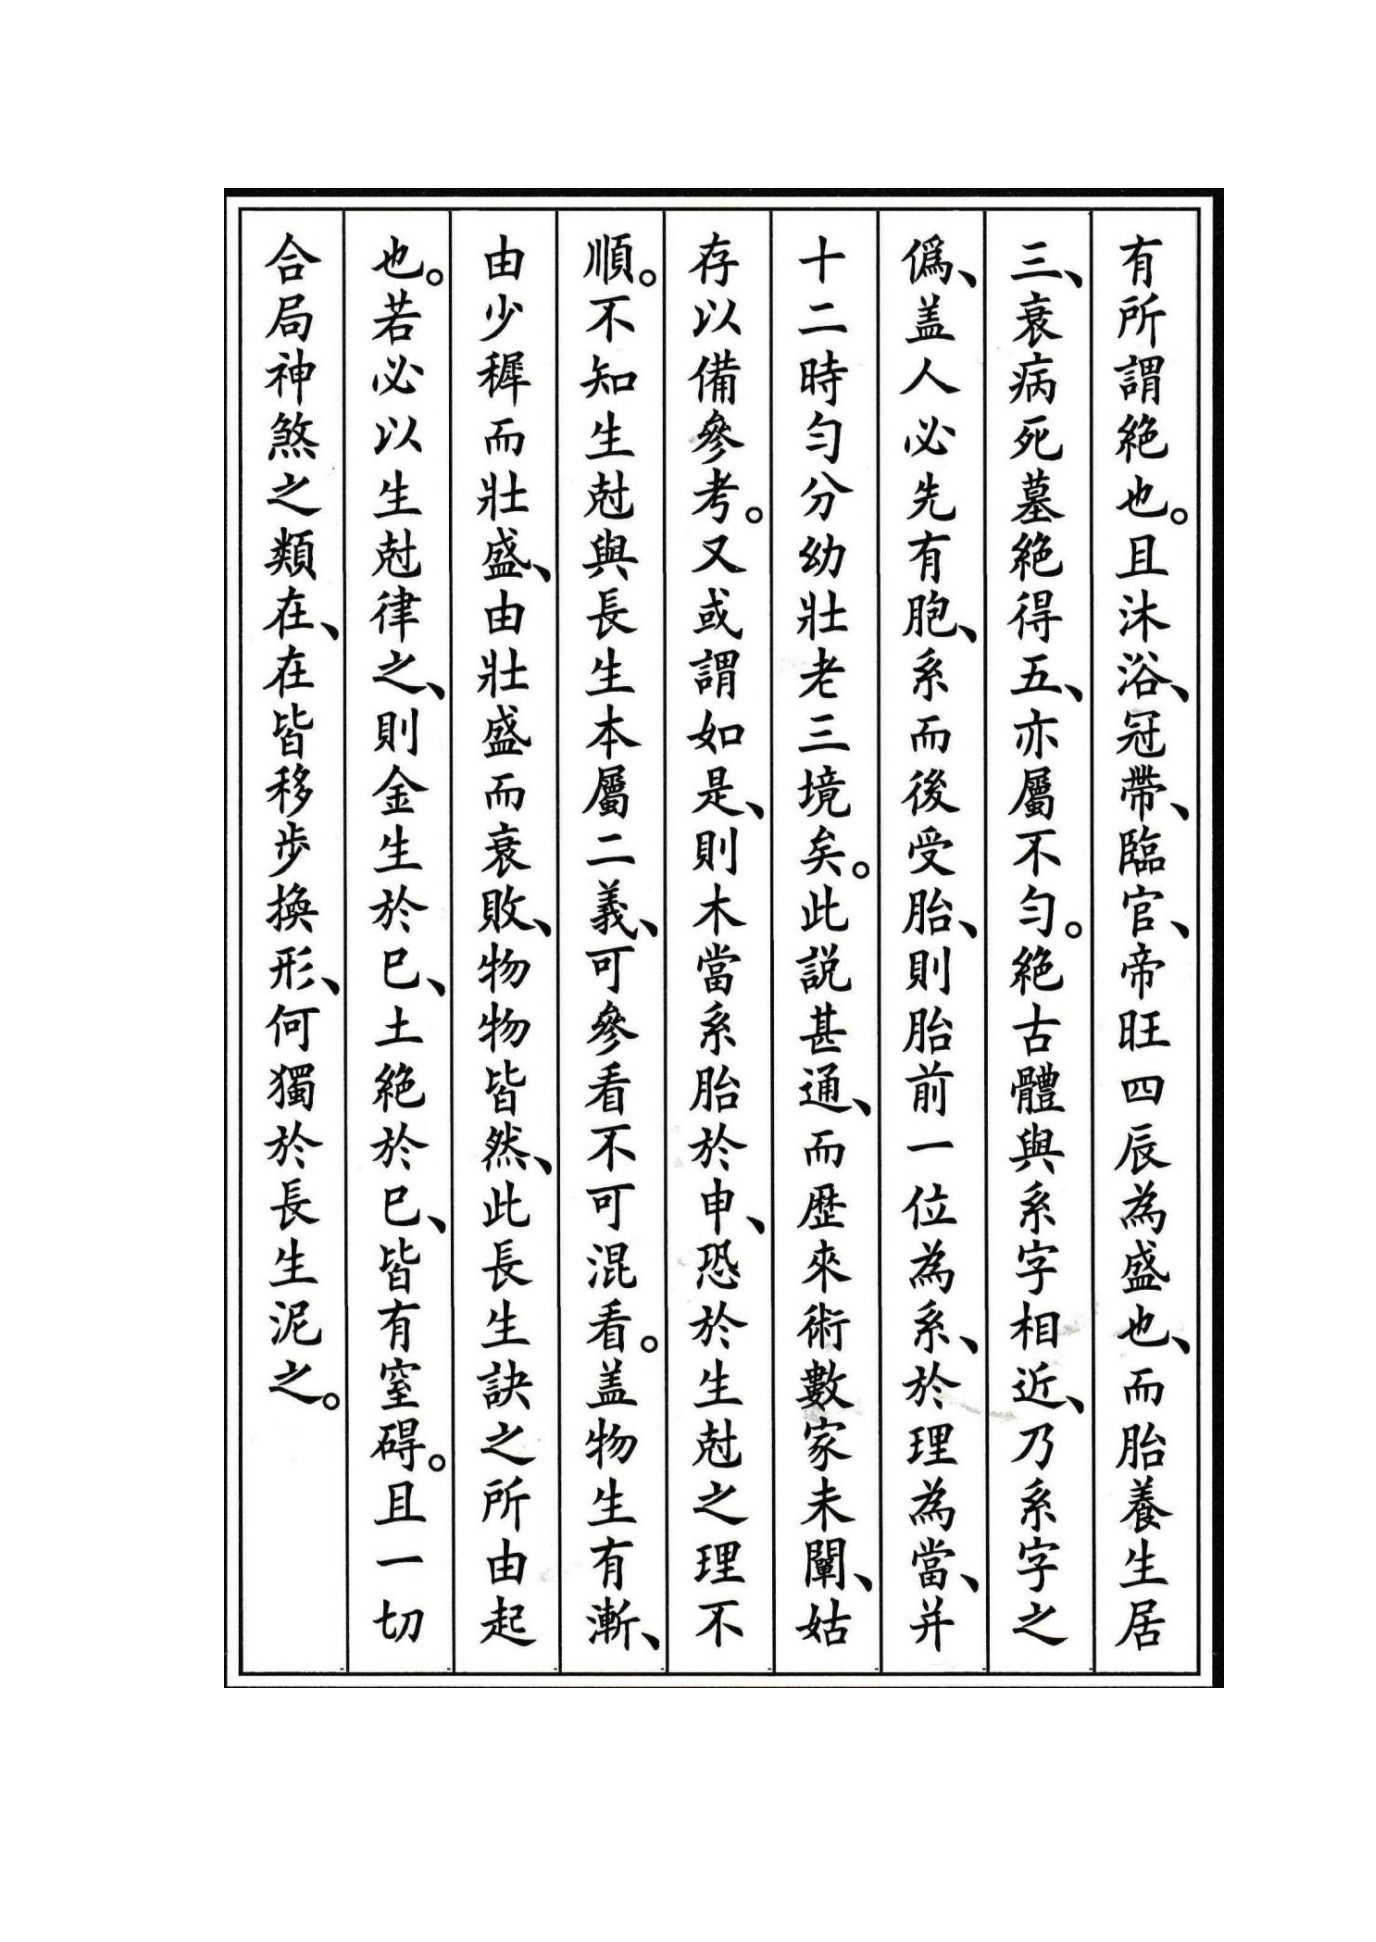 有所謂絶也。且沐浴、冠帶、臨官、帝旺四辰為盛也、而胎養生居
三、衰病死墓絶得五、亦屬不勻。絶古體與系字相近、乃系字之
僞、盖人必先有胞、系而後受胎、則胎前一位為系、於理為當、并
十二時勻分幼壯老三境矣。此説甚通、而歷來術數家未闡、姑
存以備參考。又或謂如是、則木當系胎於申、恐於生尅之理不
順。不知生尅與長生本屬二義、可參看不可混看。盖物生有漸、
由少穉而壯盛、由壯盛而衰敗、物物皆然、此長生訣之所由起
也。若必以生尅律之、則金生於巳、土絶於巳、皆有窒碍。且一切
合局神煞之類在、在皆移步換形、何獨於長生泥之。